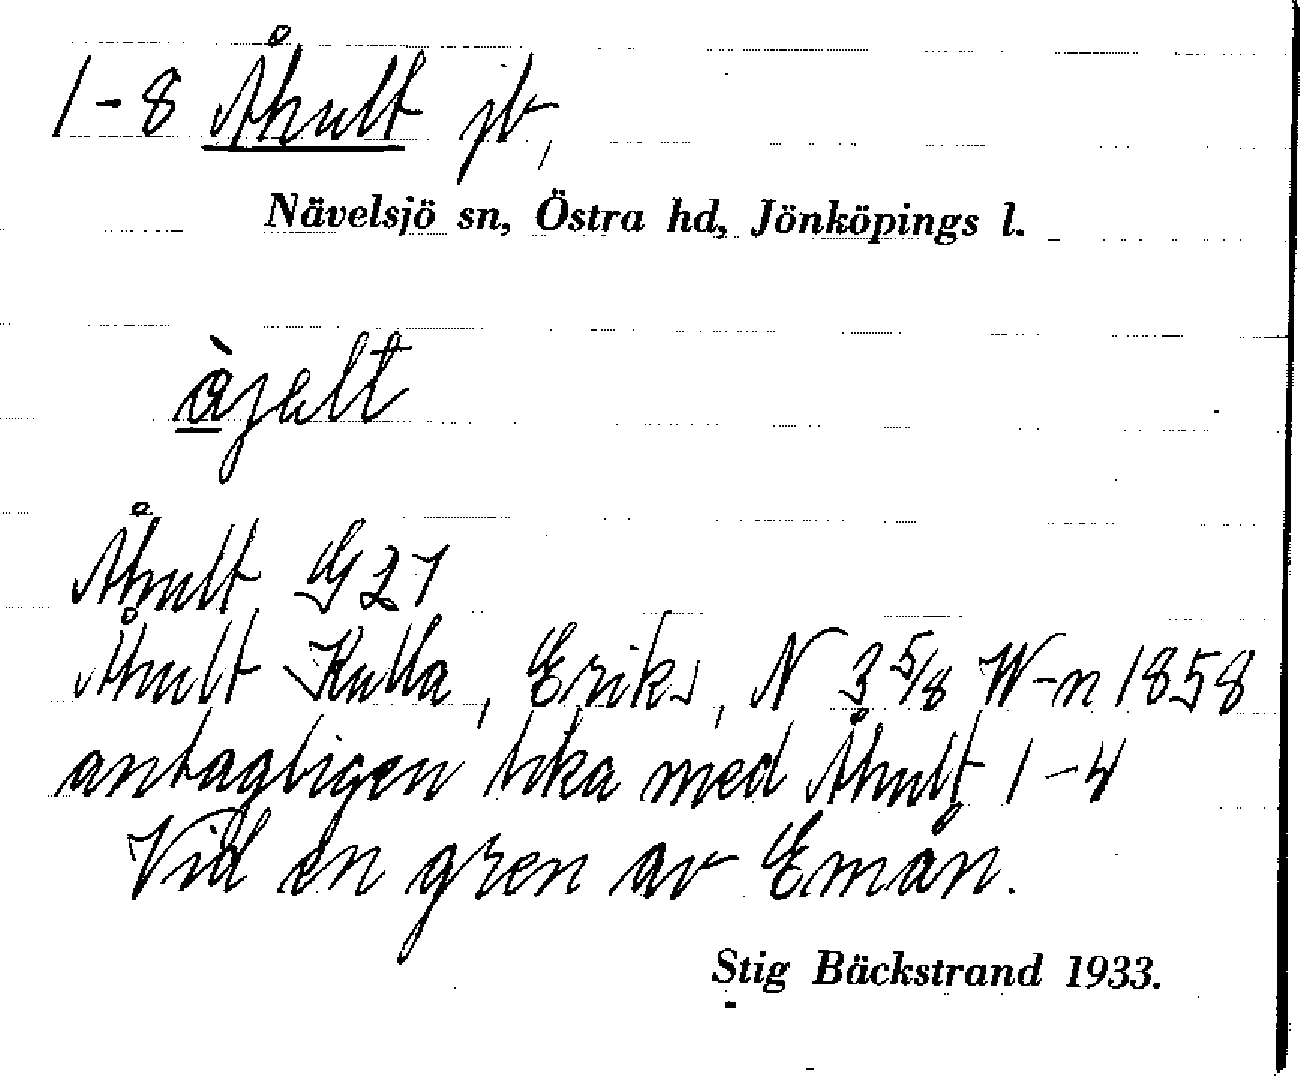 1-8 Åhult jb,
Nävelsjö sn, Östra hd, Jönköpings l.
Åhult G27
Åhult Kulla, Eriks, N 3 5/8 W-n 1858
antagligen lika med Åhult 1-4
Vid en gren av Emån.
Stig Bäckstrand 1933.